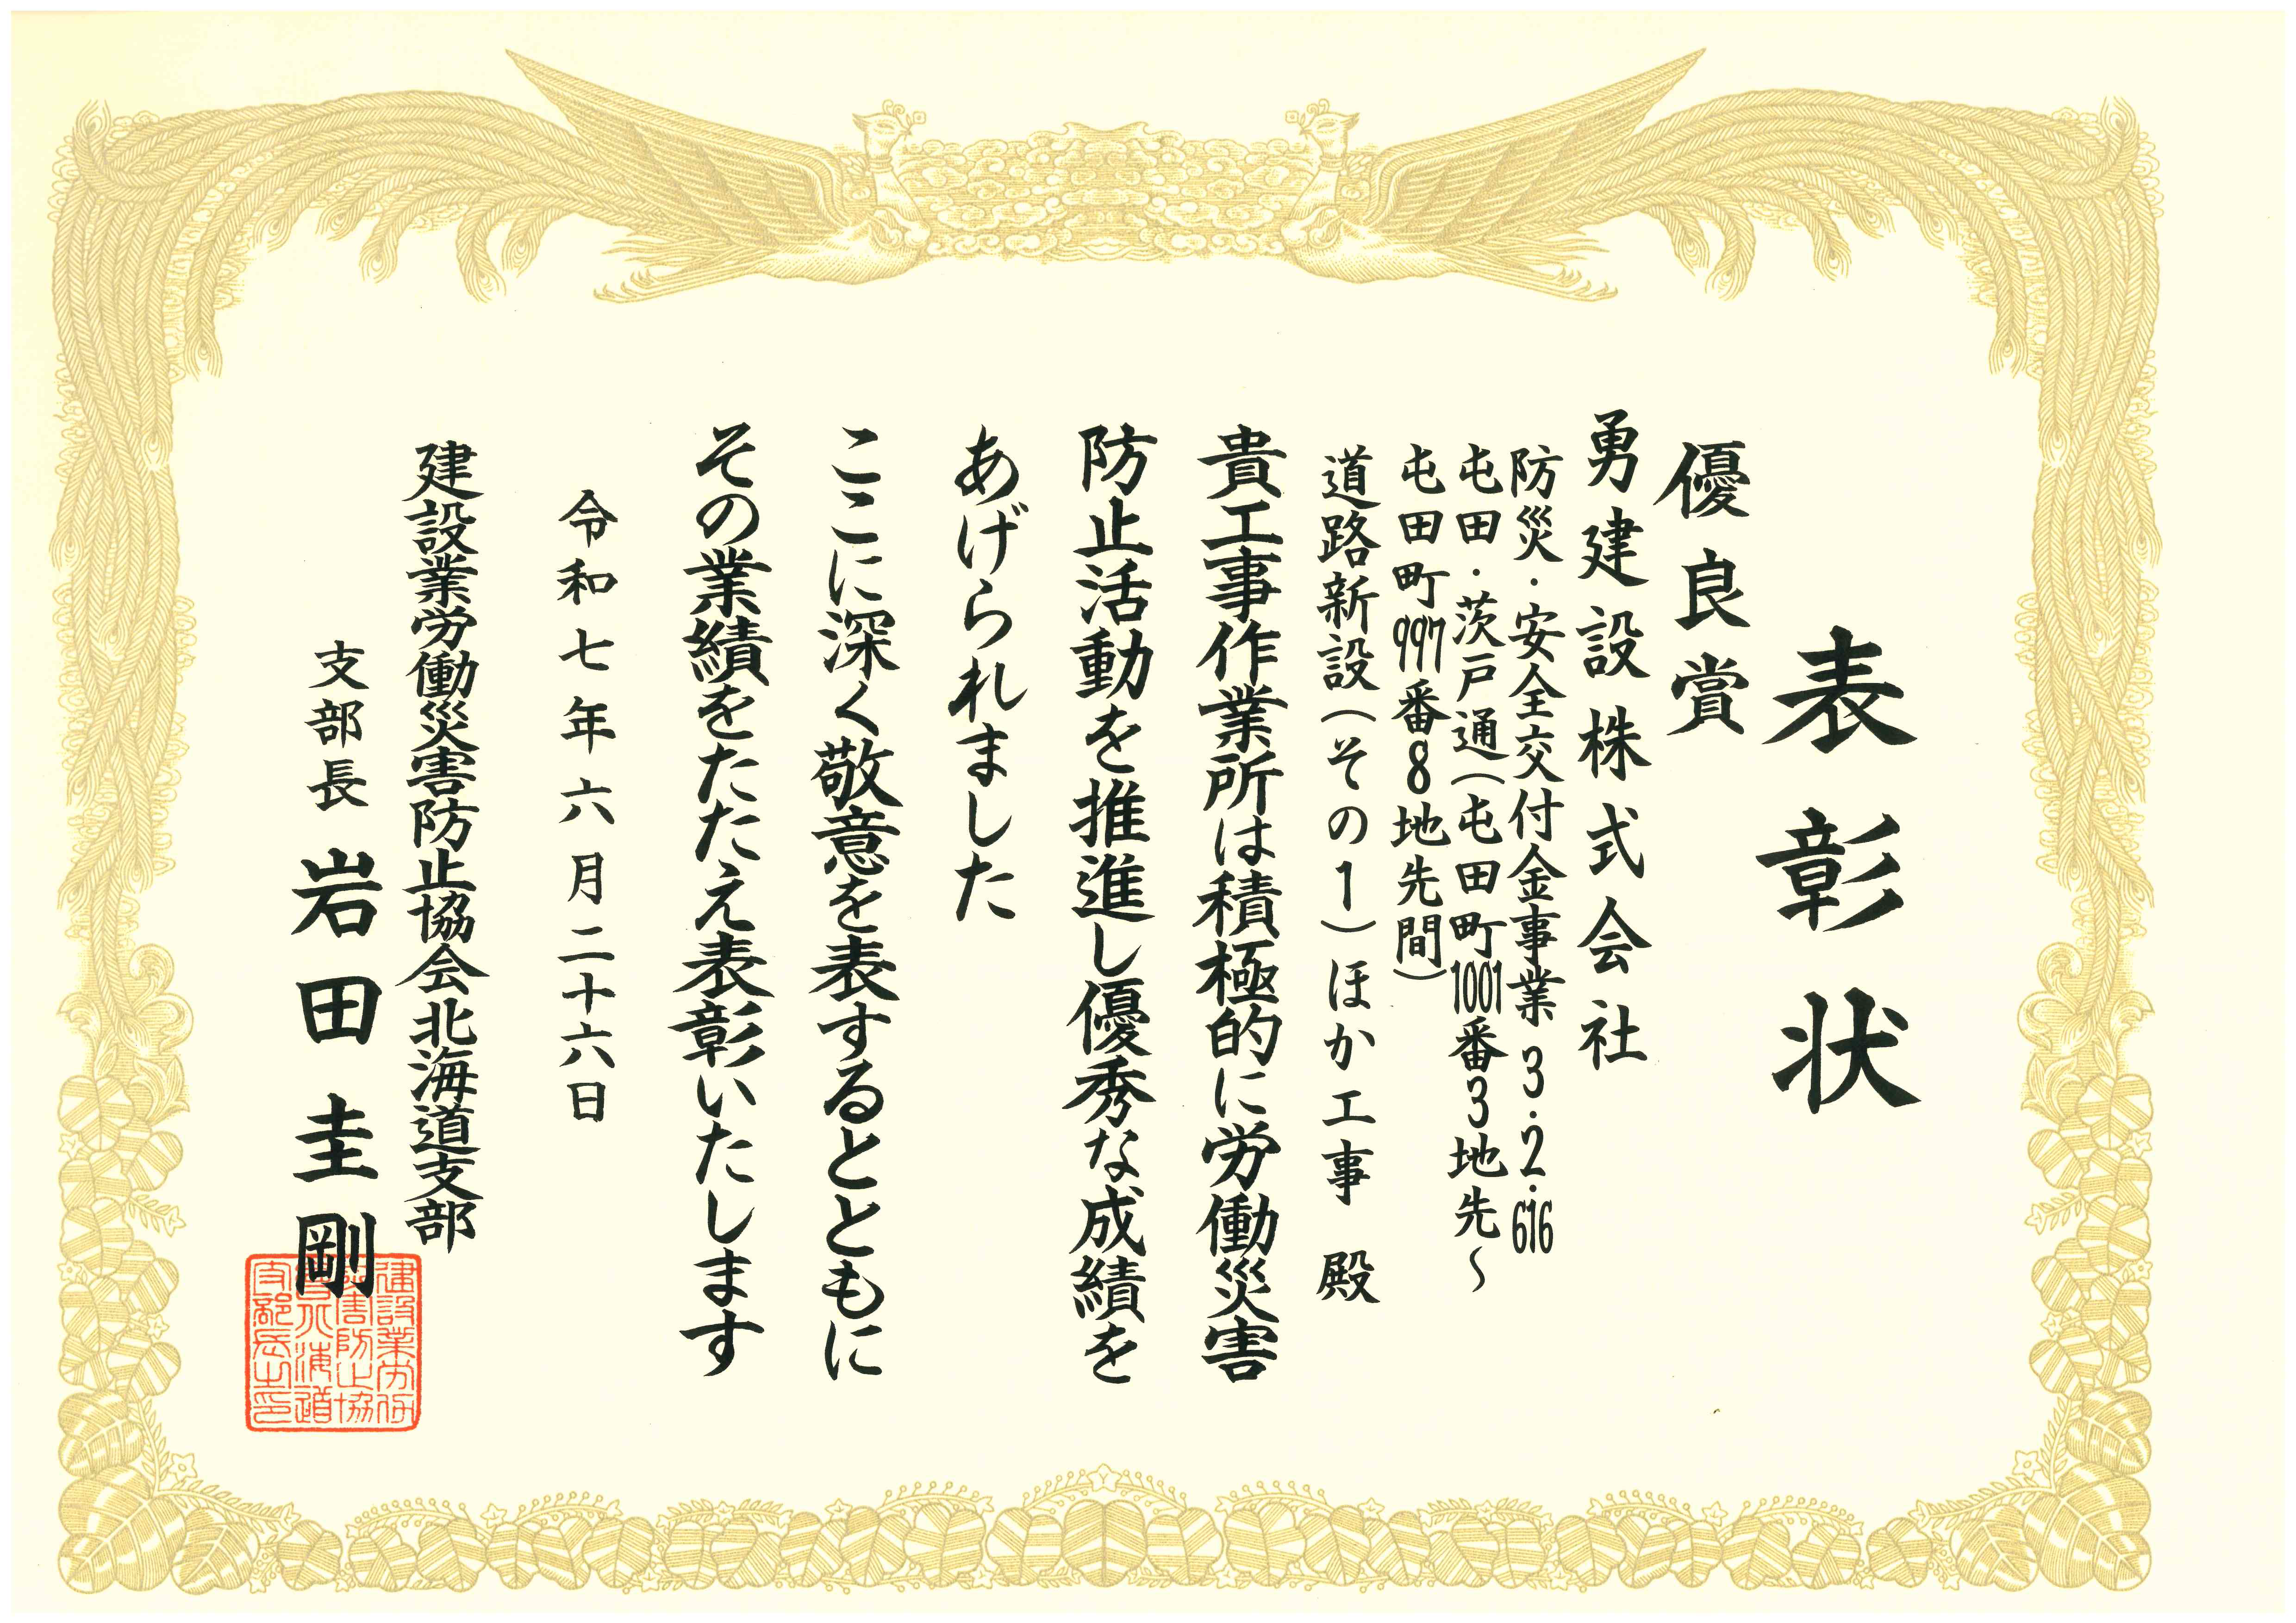 表彰状
優良賞
勇建設株式会社
防災・安全交付金事業 3・2・616
屯田・茨戸通(屯田町1001番3地先~
屯田町997番8地先間)
道路新設(その1)ほか工事 殿
貴工事作業所は積極的に労働災害
防止活動を推進し優秀な成績を
あげられました
ここに深く敬意を表するとともに
その業績をたたえ表彰いたします
令和七年六月二十六日
建設業労働災害防止協会北海道支部
支部長 岩田圭剛
建設業労働
災害防止協
会北海道
支部長之印